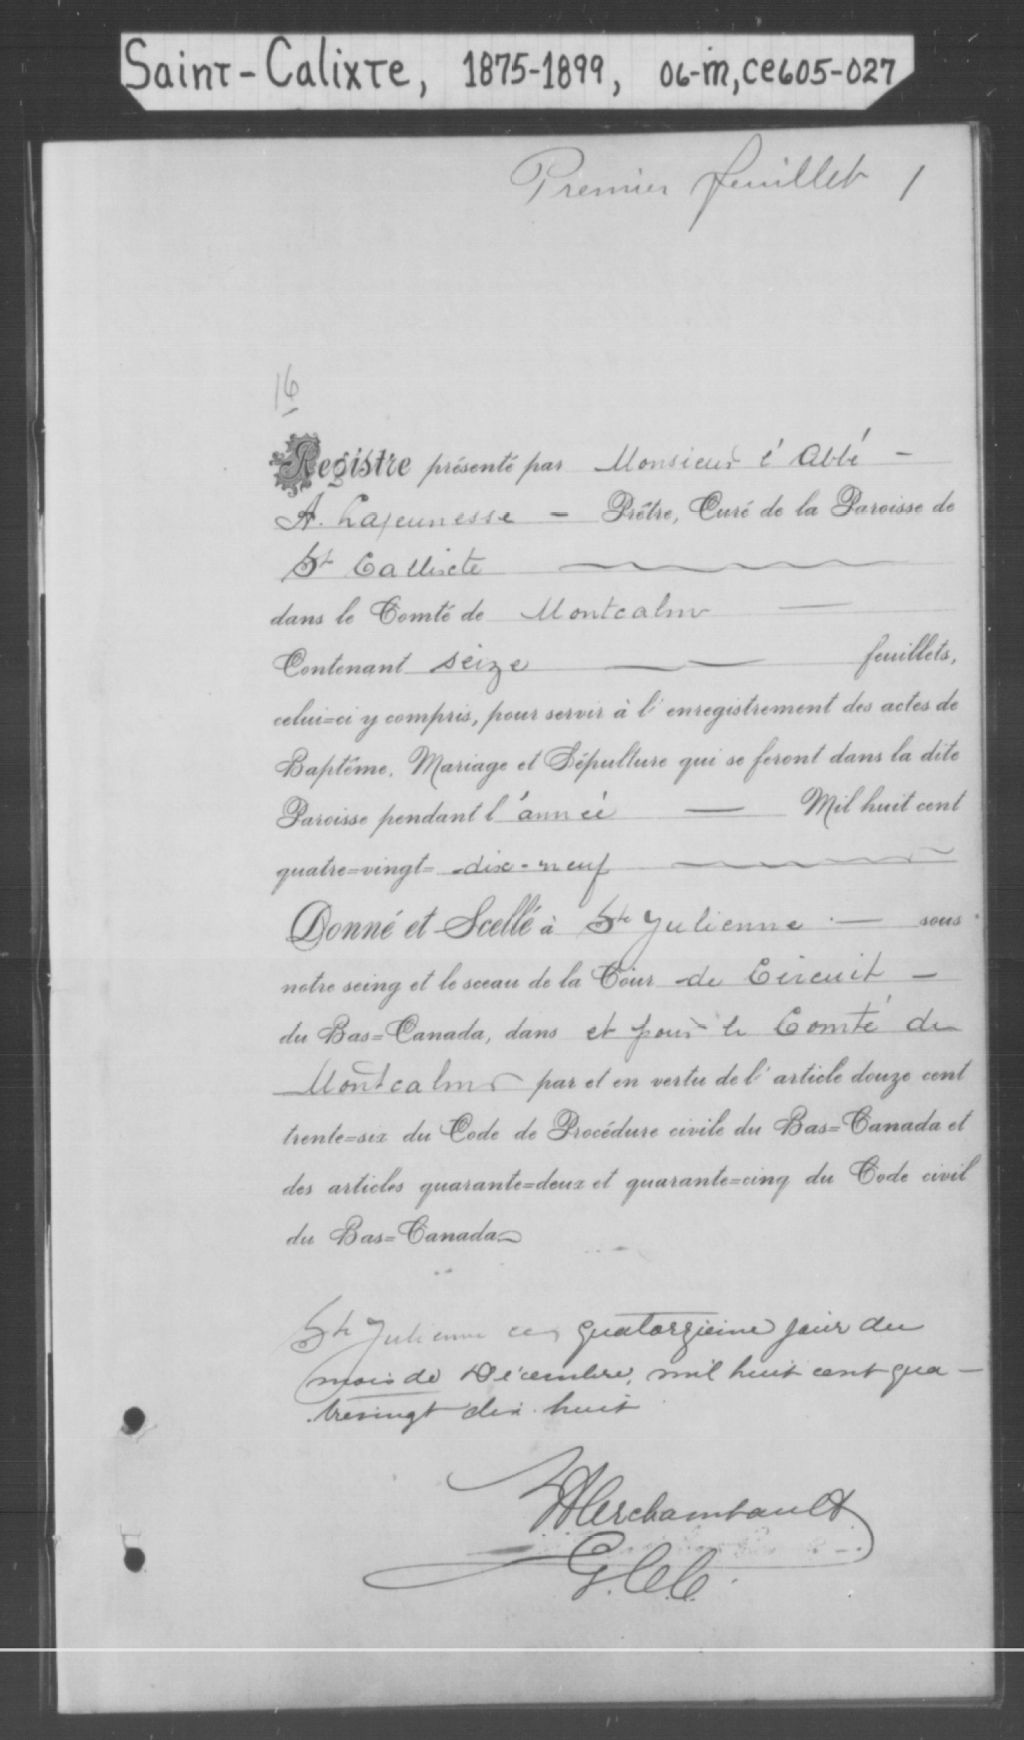 Saint-Calixte, 1875-1899, 06-m, ce605-027
Premier feuillet 1
16
Registre présenté par Monsieur l'Abbé -
A. Lajeunesse - Prêtre, Curé de la Paroisse de
St Callixte
dans le Comté de Montcalm
Contenant seize feuillets,
celui=ci y compris, pour servir à l'enregistrement des actes de
Baptême, Mariage et Sépulture qui se feront dans la dite
Paroisse pendant l'année — Mil huit cent
quatre=vingt= dix-neuf
Donné et Scellé à Ste Julienne — sous
notre seing et le sceau de la Cour de Circuit -
du Bas=Canada, dans et pour le Comté de
Montcalm par et en vertu de l'article douze cent
trente=six du Code de Procédure civile du Bas=Canada et
des articles quarante=deux et quarante=cinq du Code civil
du Bas=Canada
Ste Julienne ce quatorzième jour du
mois de Décembre, mil huit cent qua-
trevingt dix huit
Archambault
G.C.C.